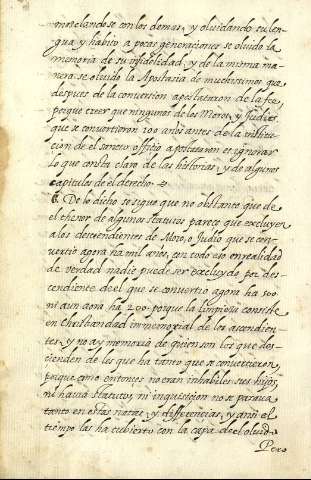 mesclandose con los demas, y olvidando su len-
gua y habito a pocas generaciones se oluido la
memoria de su infidelidad, y de la misma ma-
nera se oluido la Apostasia de muchissimos que
despues de la conuersion apostataron de la fee,
porque creer que ningunos de los Moros, y Judios
que se conuertieron 200 años antes de la institu-
cion de el sancto officio apostataron es ignorar
lo que consta claro de las historias, y de algunos
capitulos de el derecho
6. De lo dicho se sigue que no obstante que de
el thenor de algunos statutos parece que excluyen
a los descendientes de Moro, o Judio que se con-
uertio agora ha mil años, con todo eso en realidad
de verdad nadie puede ser excluydo por des-
cendiente de el que se conuertio agora ha 500
ni aun aora ha 200. porque la limpieza consiste
en Christiandad inmemorial de los ascendien-
tes, y no ay memoria de quien son los que des-
cienden de los que ha tanto que se conuertieron,
porque como entonces no eran inhabiles sus hijos,
ni hauia statutos, ni inquisicion no se paraua
tanto en estas notas, y differencias, y assi el
tiempo las ha cubierto con la capa de el oluido.
Pero